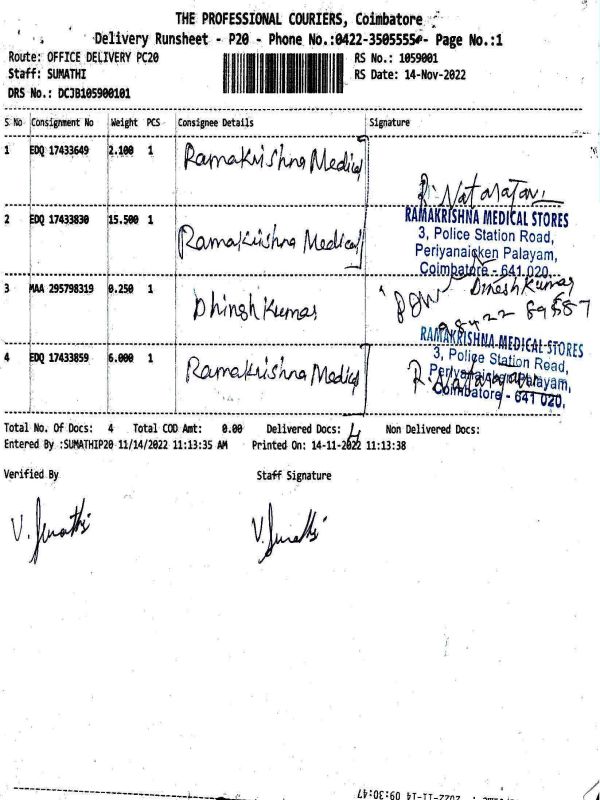 THE PROFESSIONAL COURIERS, Coimbatore
Delivery Runsheet - P20 - Phone No.:0422-3505555 - Page No.:1
Route: OFFICE DELIVERY PC20 RS No.: 1059001
Staff: SUMATHI RS Date: 14-Nov-2022
DRS No.: DCJB105900101
S No Consignment No Weight PCS Consignee Details Signature
1 EDQ 17433649 2.100 1 Ramakrishna Medical
R. Natarajan
RAMAKRISHNA MEDICAL STORES
2 EDQ 17433830 15.500 1 Ramakrishna Medical
3, Police Station Road,
Periyanaicken Palayam,
Coimbatore - 641 020.
3 MAA 295798319 0.250 1 Dhinesh Kumar
Dinesh Kumar
RAMAKRISHNA MEDICAL STORES
4 EDQ 17433859 6.000 1 Ramakrishna Medical
3, Police Station Road,
Periyanaicken Palayam,
R. Natarajan
Coimbatore - 641 020.
Total No. Of Docs: 4 Total COD Amt: 0.00 Delivered Docs: 4 Non Delivered Docs:
Entered By :SUMATHIP20 11/14/2022 11:13:35 AM Printed On: 14-11-2022 11:13:38
Verified By Staff Signature
V. Sumathi V. Sumathi